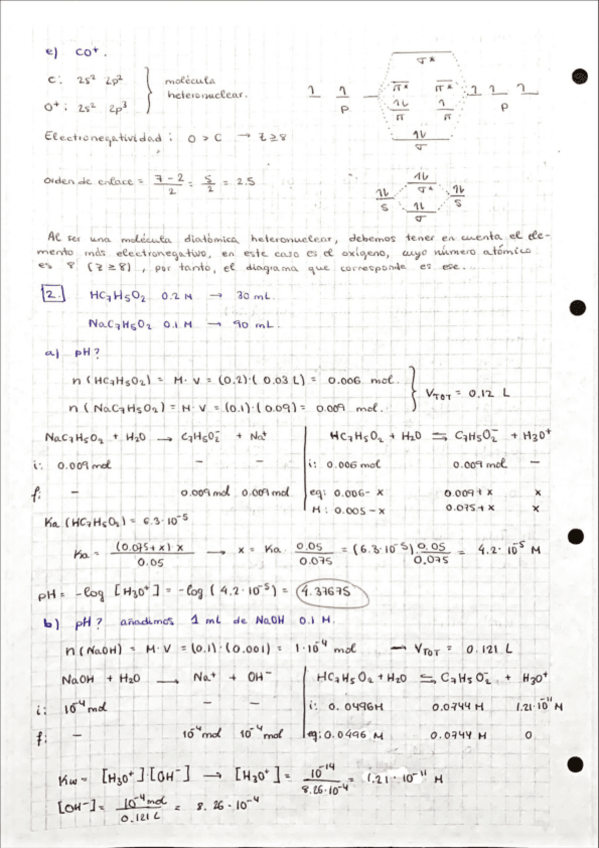 e) CO⁺.
C: 2s² 2p²
O⁺: 2s² 2p³
molécula heteronuclear.
σ*
π* π*
p p
π π
σ
Electronegatividad: O > C → Z≥8
Orden de enlace = (7-2)/2 = 5/2 = 2.5
σ*
S S
σ
Al ser una molécula diatómica heteronuclear, debemos tener en cuenta el ele-
mento más electronegativo, en este caso es el oxígeno, cuyo número atómico
es 8 (Z≥8), por tanto, el diagrama que corresponde es ese..
2. HC7H5O2 0.2 M → 30 mL.
NaC7H5O2 0.1 M → 90 mL.
a) pH?
n(HC7H5O2) = M·V = (0.2)·(0.03 L) = 0.006 mol.
n(NaC7H5O2) = M·V = (0.1)·(0.09) = 0.009 mol.
VTOT = 0.12 L
NaC7H5O2 + H2O → C7H5O2⁻ + Na⁺
HC7H5O2 + H2O ⇆ C7H5O2⁻ + H3O⁺
i: 0.009 mol – –
i: 0.006 mol 0.009 mol –
f: – 0.009 mol 0.009 mol
eq: 0.006-x 0.009+x x
M: 0.005-x 0.075+x x
Ka (HC7H5O2) = 6.3·10⁻⁵
Ka = (0.075+x)·x / 0.05 → x = Ka · 0.05/0.075 = (6.3·10⁻⁵) 0.05/0.075 = 4.2·10⁻⁵ M
pH = -log [H3O⁺] = -log (4.2·10⁻⁵) = 4.37675
b) pH? añadimos 1 ml de NaOH 0.1 M.
n(NaOH) = M·V = (0.1)·(0.001) = 1·10⁻⁴ mol → VTOT = 0.121 L
NaOH + H2O → Na⁺ + OH⁻
HC7H5O2 + H2O ⇆ C7H5O2⁻ + H3O⁺
i: 10⁻⁴ mol – –
i: 0.0496 M 0.0744 M 1.21·10⁻¹¹ M
f: – 10⁻⁴ mol 10⁻⁴ mol
eq: 0.0496 M 0.0744 M 0
Kw = [H3O⁺]·[OH⁻] → [H3O⁺] = 10⁻¹⁴ / 8.26·10⁻⁴ = 1.21·10⁻¹¹ M
[OH⁻] = 10⁻⁴ mol / 0.121 L = 8.26·10⁻⁴